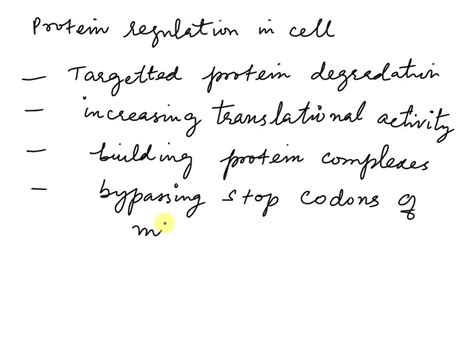 Protein regulation in cell
— Targetted protein degradation
– increasing translational activity
– building protein complexes
– bypassing stop codons of
m